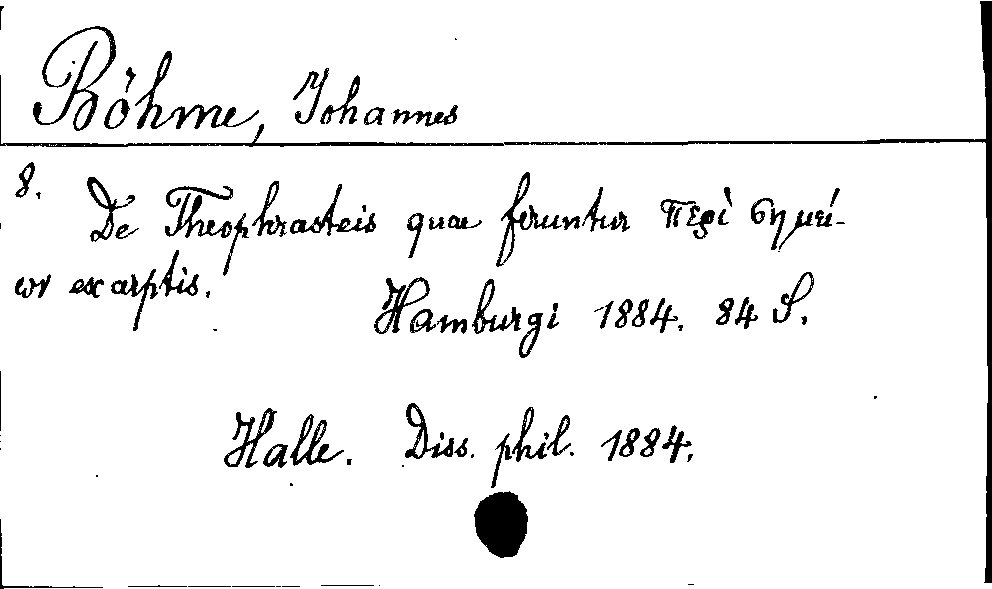 Böhme, Johannes
8. De Theophrasteis quae feruntur περὶ σημεί-
ων excarptis.
Hamburgi 1884. 84 S.
Halle. Diss. phil. 1884.